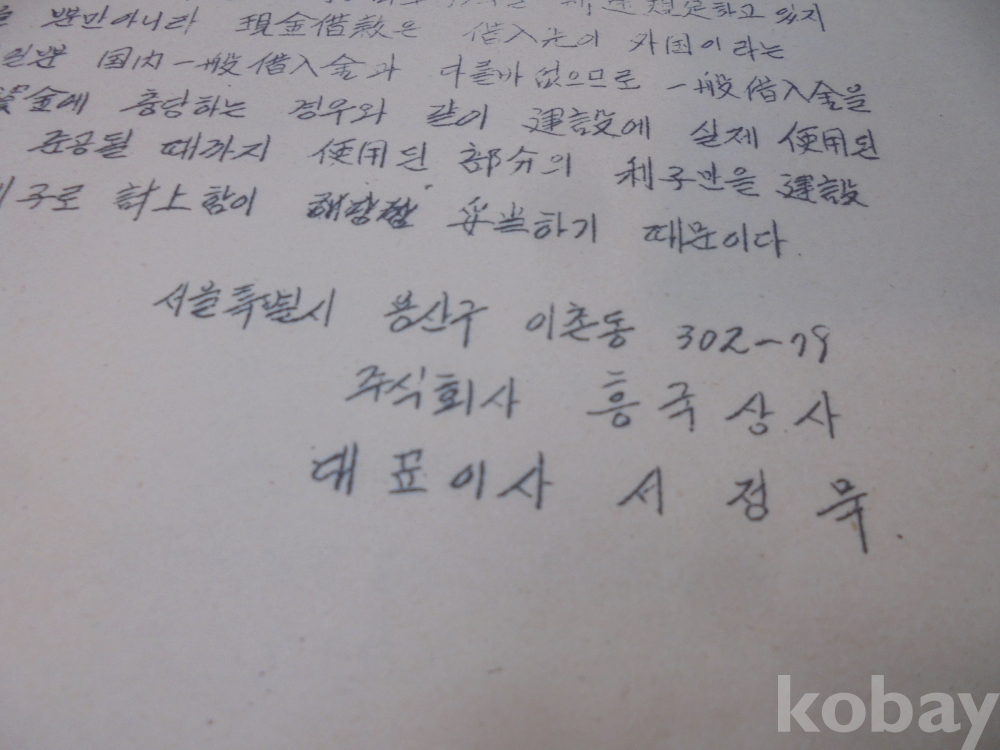 規定하고 있지
뿐만아니라 現金借款은 借入先이 外国이라는
国内一般借入金과 다를바 없으므로 一般借入金을
金에 충당하는 경우와 같이 建設에 실제 使用된
준공될 때까지 使用된 部分의 利子만을 建設
子로 計上함이 妥当하기 때문이다.
서울특별시 용산구 이촌동 302-79
주식회사 흥국상사
대표이사 서정묵.
kobay